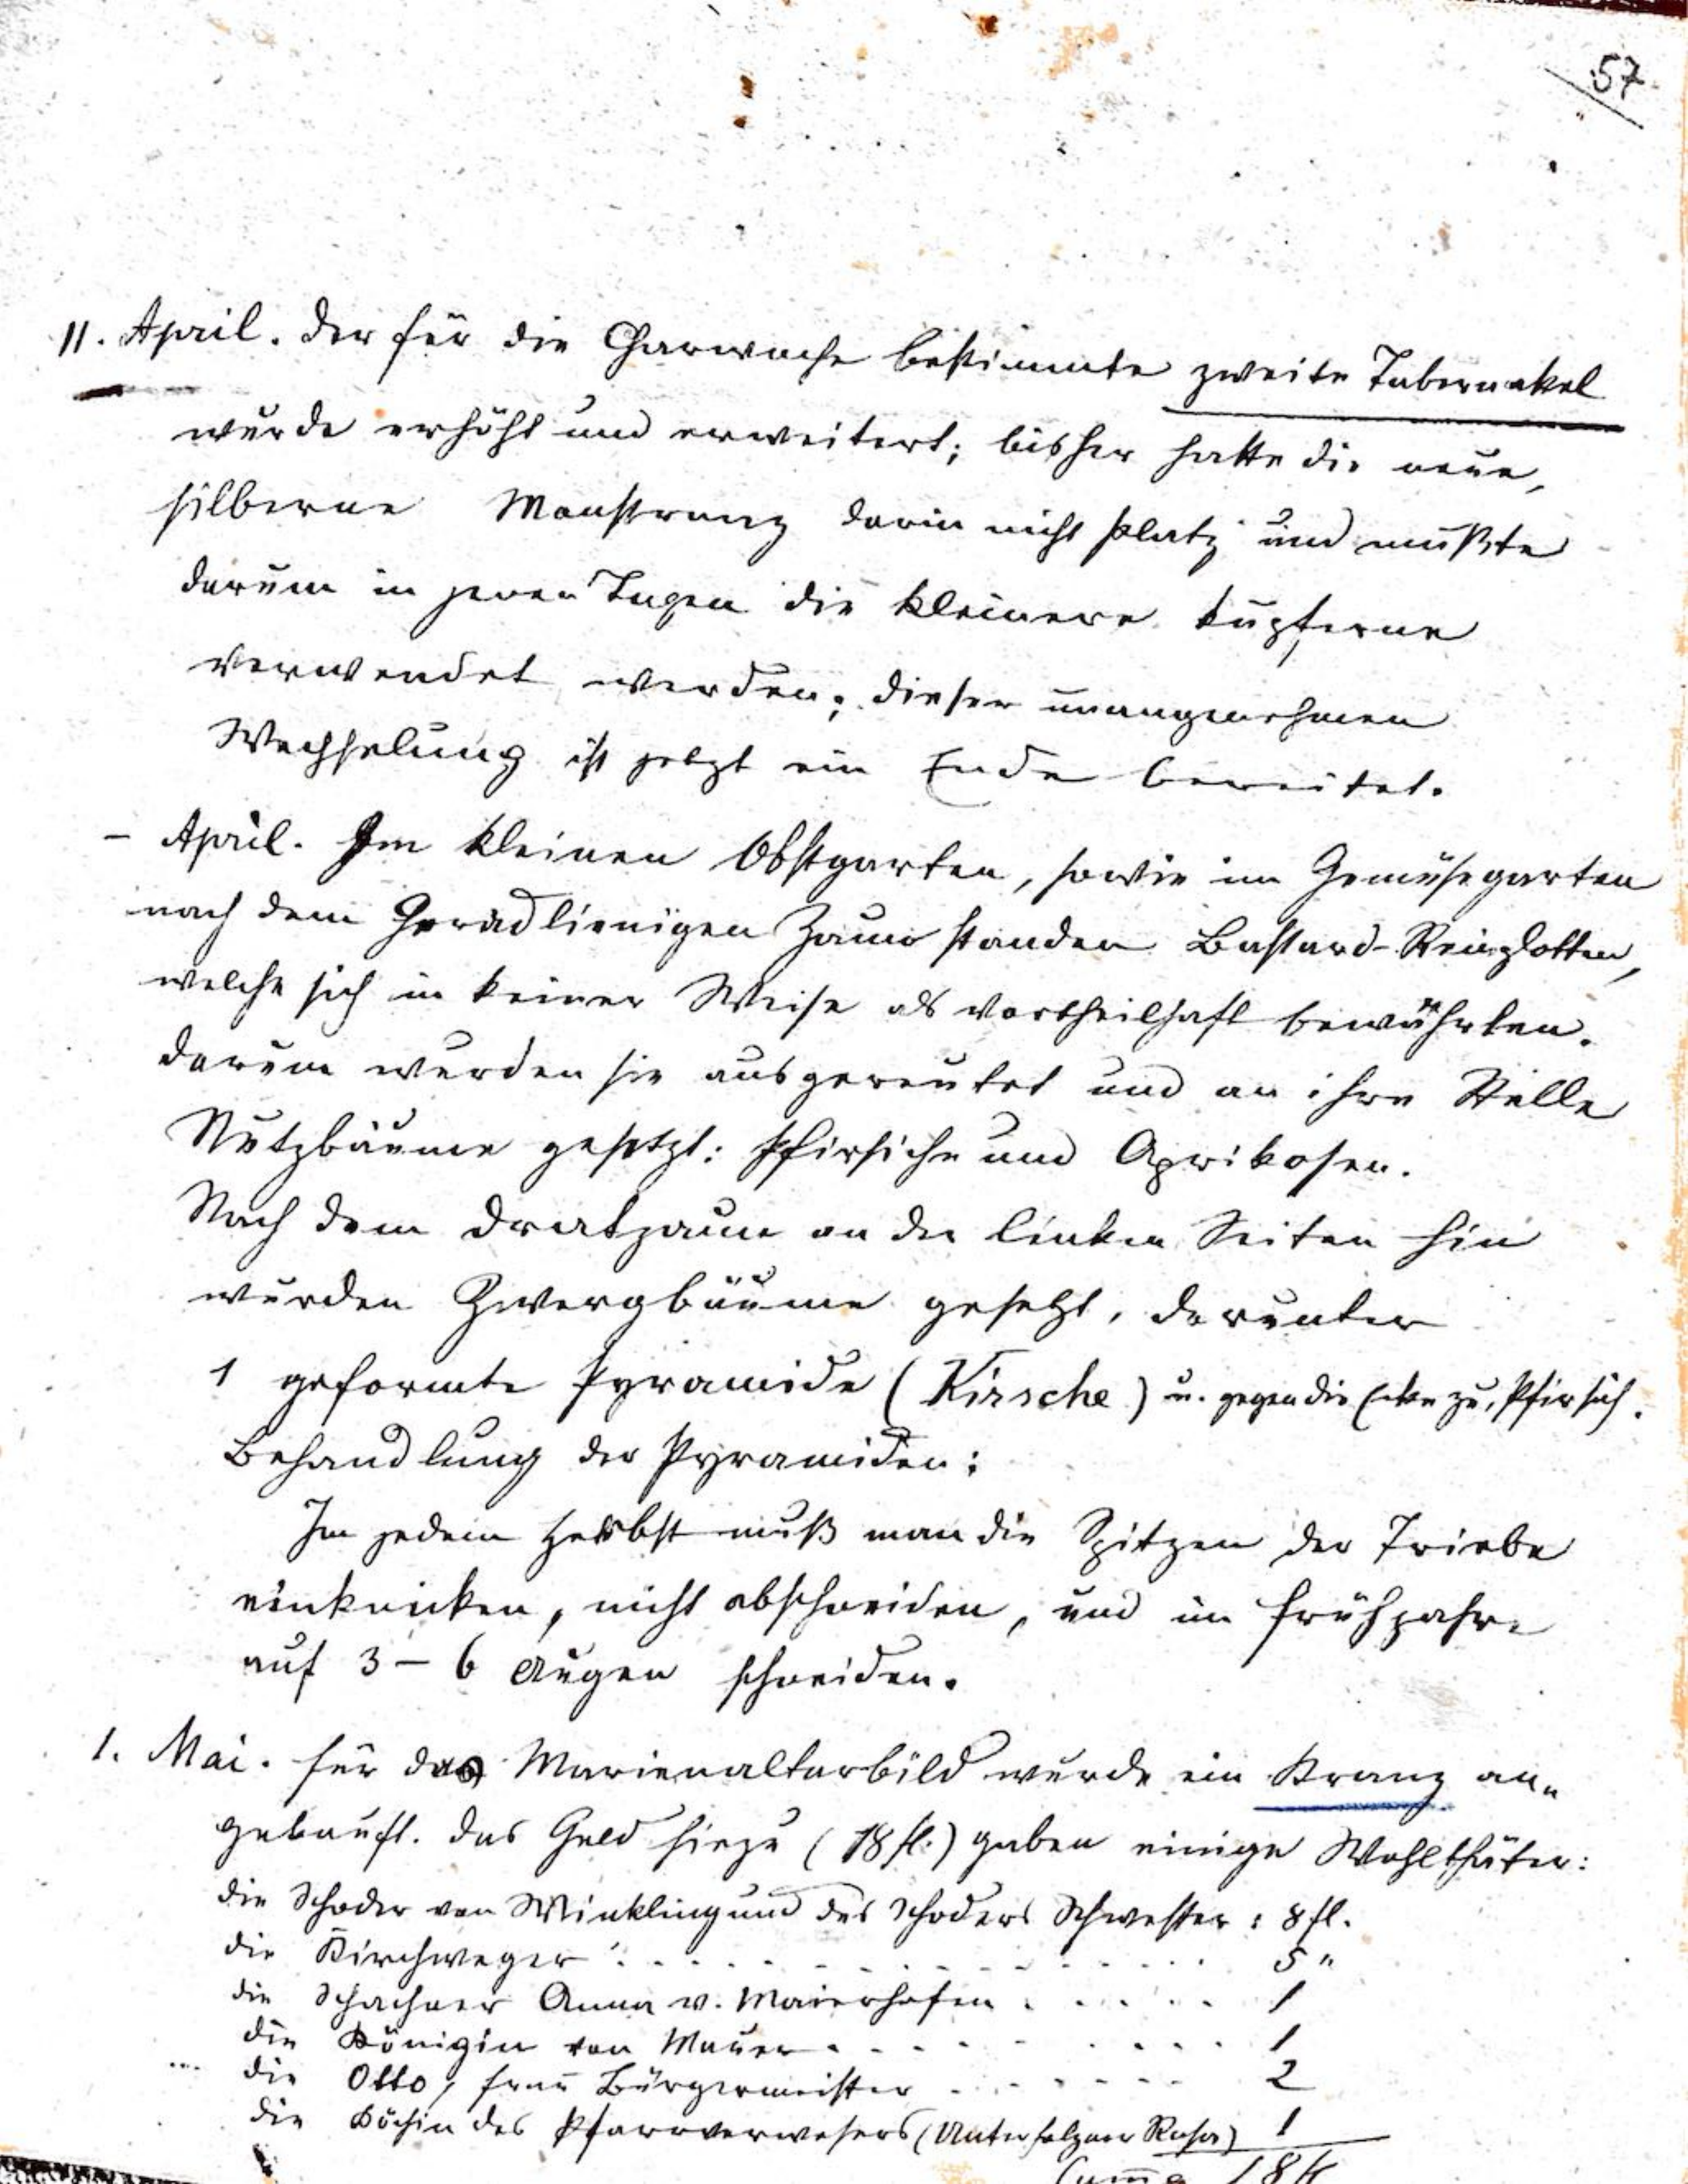 57
11. April. Der für die Charwoche bestimmte zweite Tabernakel
wurde erhöht und erweitert; bisher hatte die neue,
silberne Monstranz darin nicht Platz und mußte
darum in jenen Tagen die kleinere kupferne
verwendet werden; dieser unangenehmen
Wechselung ist jetzt ein Ende bereitet.
– April. Im kleinen Obstgarten, sowie im Gemüsegarten
nach dem geradlienigen Zaune standen Bastard-Ringlotten,
welche sich in keiner Weise als vortheilhaft bewährten.
Darum wurden sie ausgereutet und an ihre Stelle
Nutzbäume gesetzt: Pfirsiche und Aprikosen.
Nach dem Dratzaune an der linken Seiten hin
wurden Zwergbäume gesetzt, darunter
1 geformte Pyramide (Kirsche) u. gegen die Ecke zu, Pfirsich.
Behandlung der Pyramiden:
Im jedem Herbst muß man die Spitzen der Triebe
einknicken, nicht abschneiden, und im Frühjahre
auf 3 – 6 Augen schneiden.
1. Mai. Für das Marienaltarbild wurde ein Kranz an-
gekauft. Das Geld hiezu (18 fl.) gaben einige Wohlthäter:
die Schoder von Winkling und des Schoders Schwester: 8 fl.
die Kirchweger . . . . . . . . . . 5 "
die Schachner Anna v. Maierhofen . . . . . 1
die Königin von Mauer . . . . . . . . 1
die Otto, Frau Bürgermeister . . . . . . . 2
die Köchin des Pfarrverwesers (Unterholzner Rosa) 1
Summa 18 fl